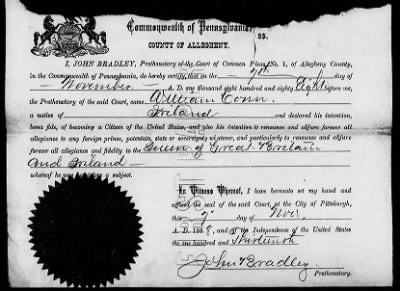 Commonwealth of Pennsylvania
COUNTY OF ALLEGHENY.
ss.
I, JOHN BRADLEY, Prothonotary of the Court of Common Pleas No. 1, of Allegheny County,
in the Commonwealth of Pennsylvania, do hereby certify, that on the 7th day of
November A. D. my thousand eight hundred and eighty Eight before me,
the Prothonotary of the said Court, came William Conn
a native of Ireland and declared his intention,
bona fide, of becoming a Citizen of the United States, and also his intention to renounce and abjure forever all
allegiance to any foreign prince, potentate, state or sovereignty whatever, and particularly to renounce and
abjure forever all allegiance and fidelity to the Queen of Great Britain
and Ireland
whereof he was a subject.
In Witness Whereof, I have hereunto set my hand and
affixed the seal of the said Court, at the City of Pittsburgh,
this 7 day of Nov.
A. D. 188 and of the Independence of the United States
the one hundred and Thirteenth
John Bradley
Prothonotary.